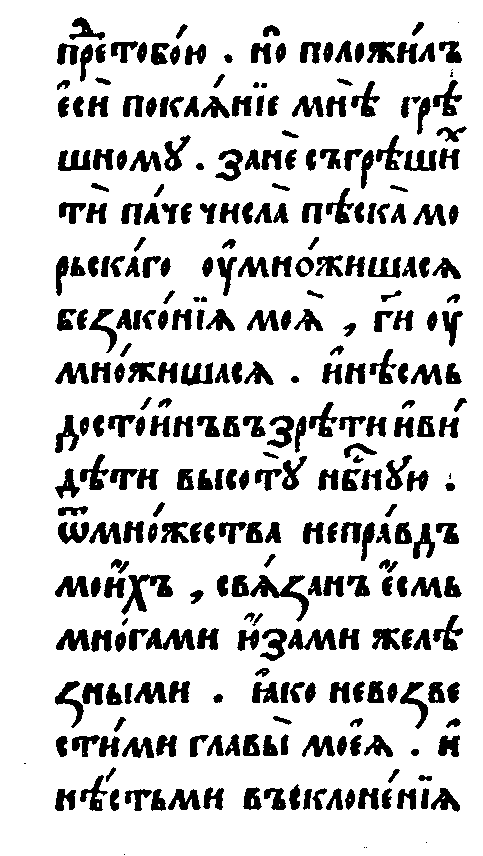 пре́дтобо́ю . но̑ положи́лъ
є҆сѝ покаѧ́нїе мнѣ̀ грѣ́
шному . занѐ съгрѣши́х
тѝ па́че числа̀ пѣска̀ мо
рьска́го оу҆мно́жишасѧ
беззако́нїѧ моѧ̀ , гⷭ҇и оу҆
мно́жишасѧ . и҆нѣсмь
досто́и҆нъвъзрѣти и҆ви́
дѣти высотꙋ̀ нбⷭ҇нꙋю .
ѿмно́жества непра́вдъ
мои́хъ , свѧ́занъ є҆смь
мно́гами ю҆́зами желѣ
зными . ꙗ҆́ко невозве
сти́ми главы̀ моеѧ̀ . и҆
нѣ́стьми въсклоне́нїѧ